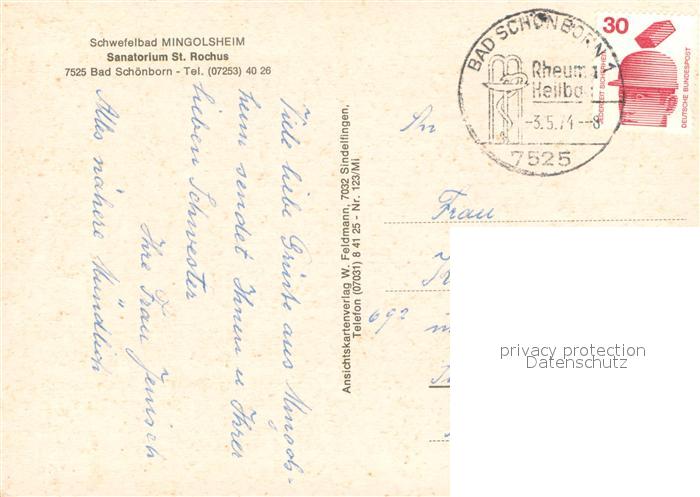 Schwefelbad MINGOLSHEIM
Sanatorium St. Rochus
7525 Bad Schönborn - Tel. (07253) 40 26
Viele liebe Grüße aus Mingols-
heim sendet Ihnen u Ihrer
lieben Schwester
Ihre Frau Jenisch
Alles nähere Mündlich
Ansichtskartenverlag W. Feldmann, 7032 Sindelfingen,
Telefon (07031) 8 41 25 - Nr. 123/Mi
BAD SCHÖNBORN 1
Rheuma
Heilba
-3.5.74--8
7525
30
DEUTSCHE BUNDESPOST
An
Frau
692
privacy protection
Datenschutz